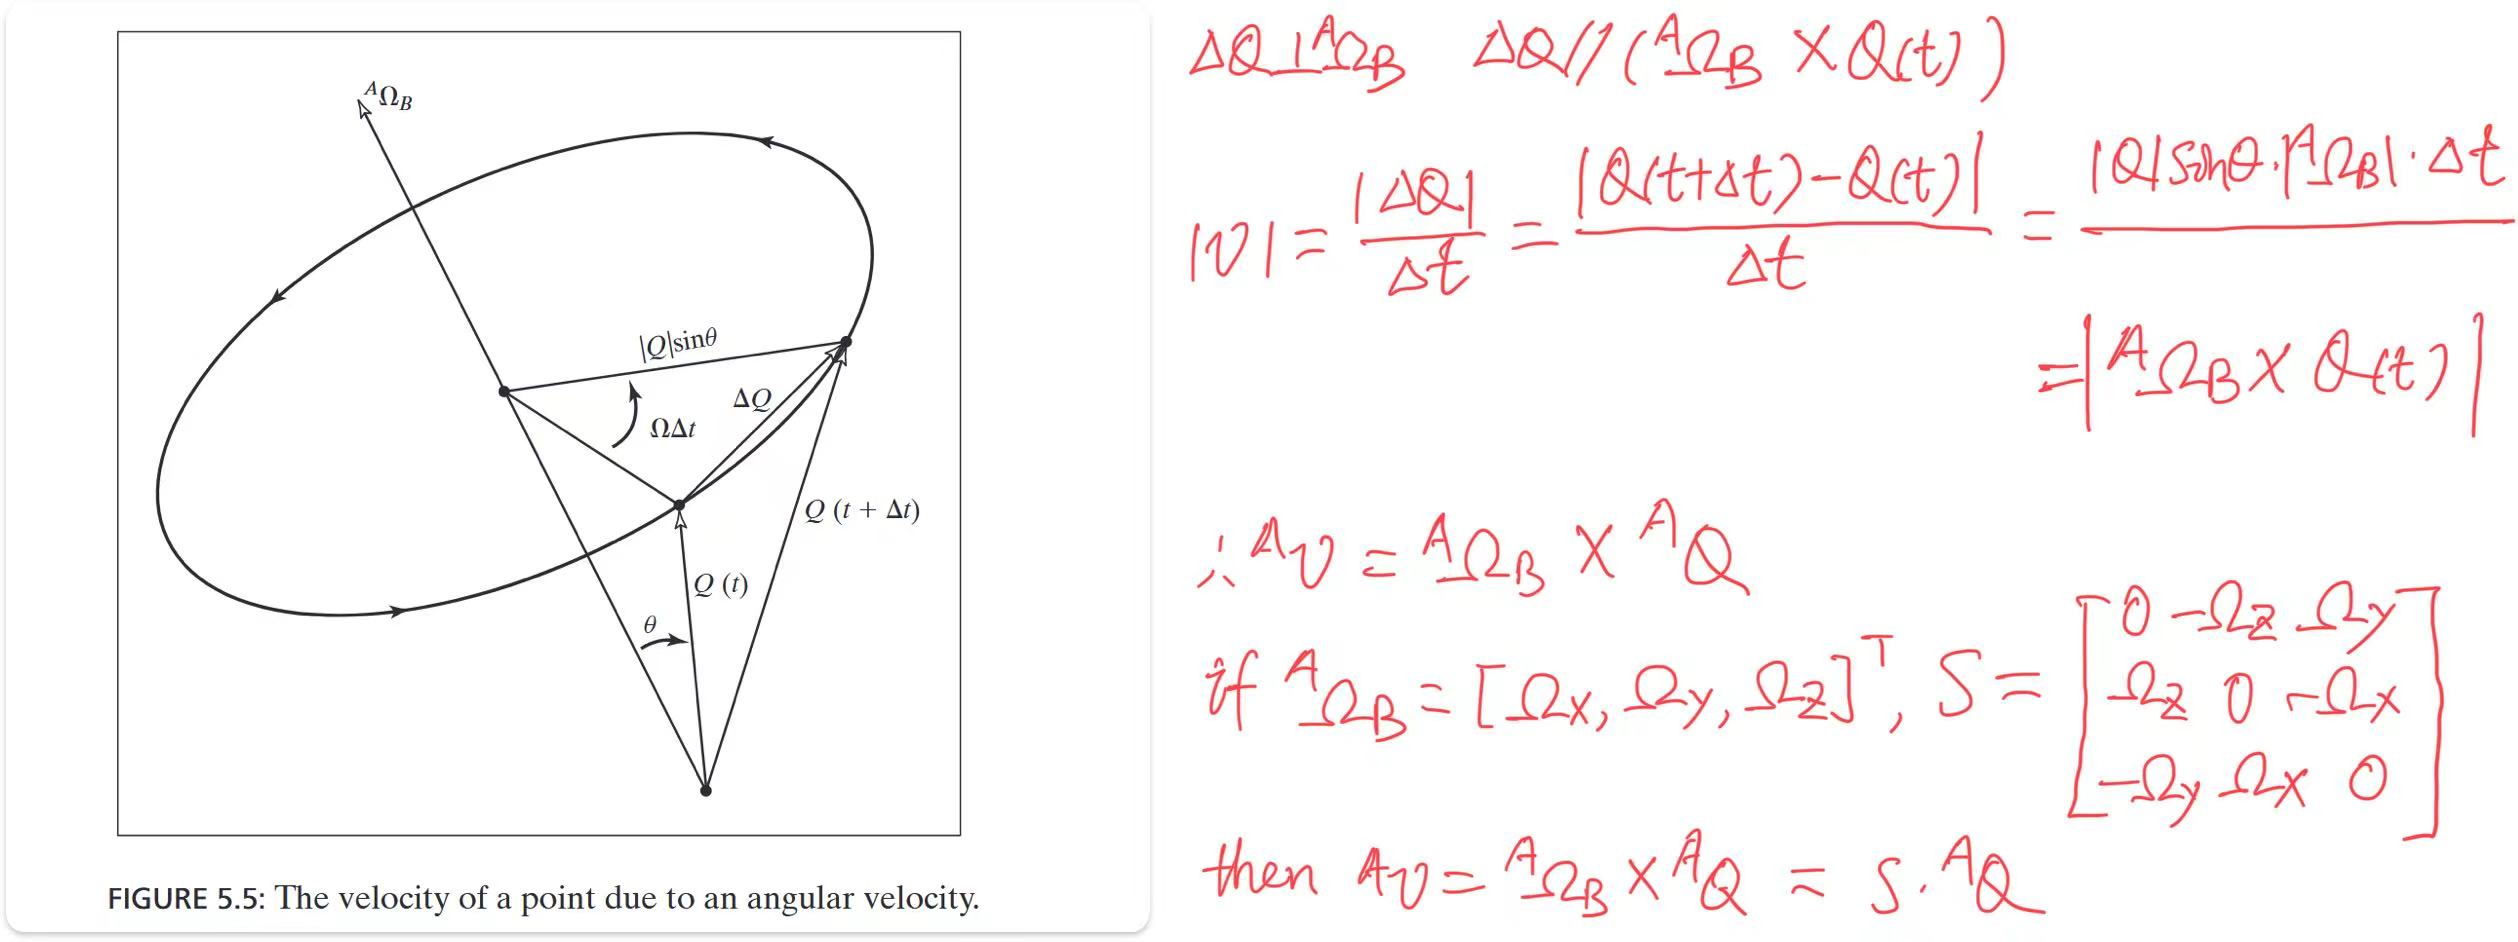 ᴬΩ_B
|Q|sinθ
ΔQ
ΩΔt
Q (t + Δt)
Q (t)
θ
FIGURE 5.5: The velocity of a point due to an angular velocity.
ΔQ⊥ᴬΩ_B ΔQ//(ᴬΩ_B × Q(t))
|v| = |ΔQ| / Δt = |Q(t+Δt)-Q(t)| / Δt = |Q|sinθ·|ᴬΩ_B|·Δt /
= |ᴬΩ_B × Q(t)|
∴ ᴬv = ᴬΩ_B × ᴬQ
if ᴬΩ_B = [Ωx, Ωy, Ωz]ᵀ, S = [0 -Ωz Ωy
Ωz 0 -Ωx
-Ωy Ωx 0]
then ᴬv = ᴬΩ_B × ᴬQ = S·ᴬQ